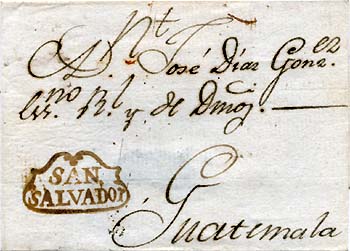 A Dn José Díaz Gonz.ez
Es.no Rl. y de Dmos.
SAN
SALVADOR
Guatemala